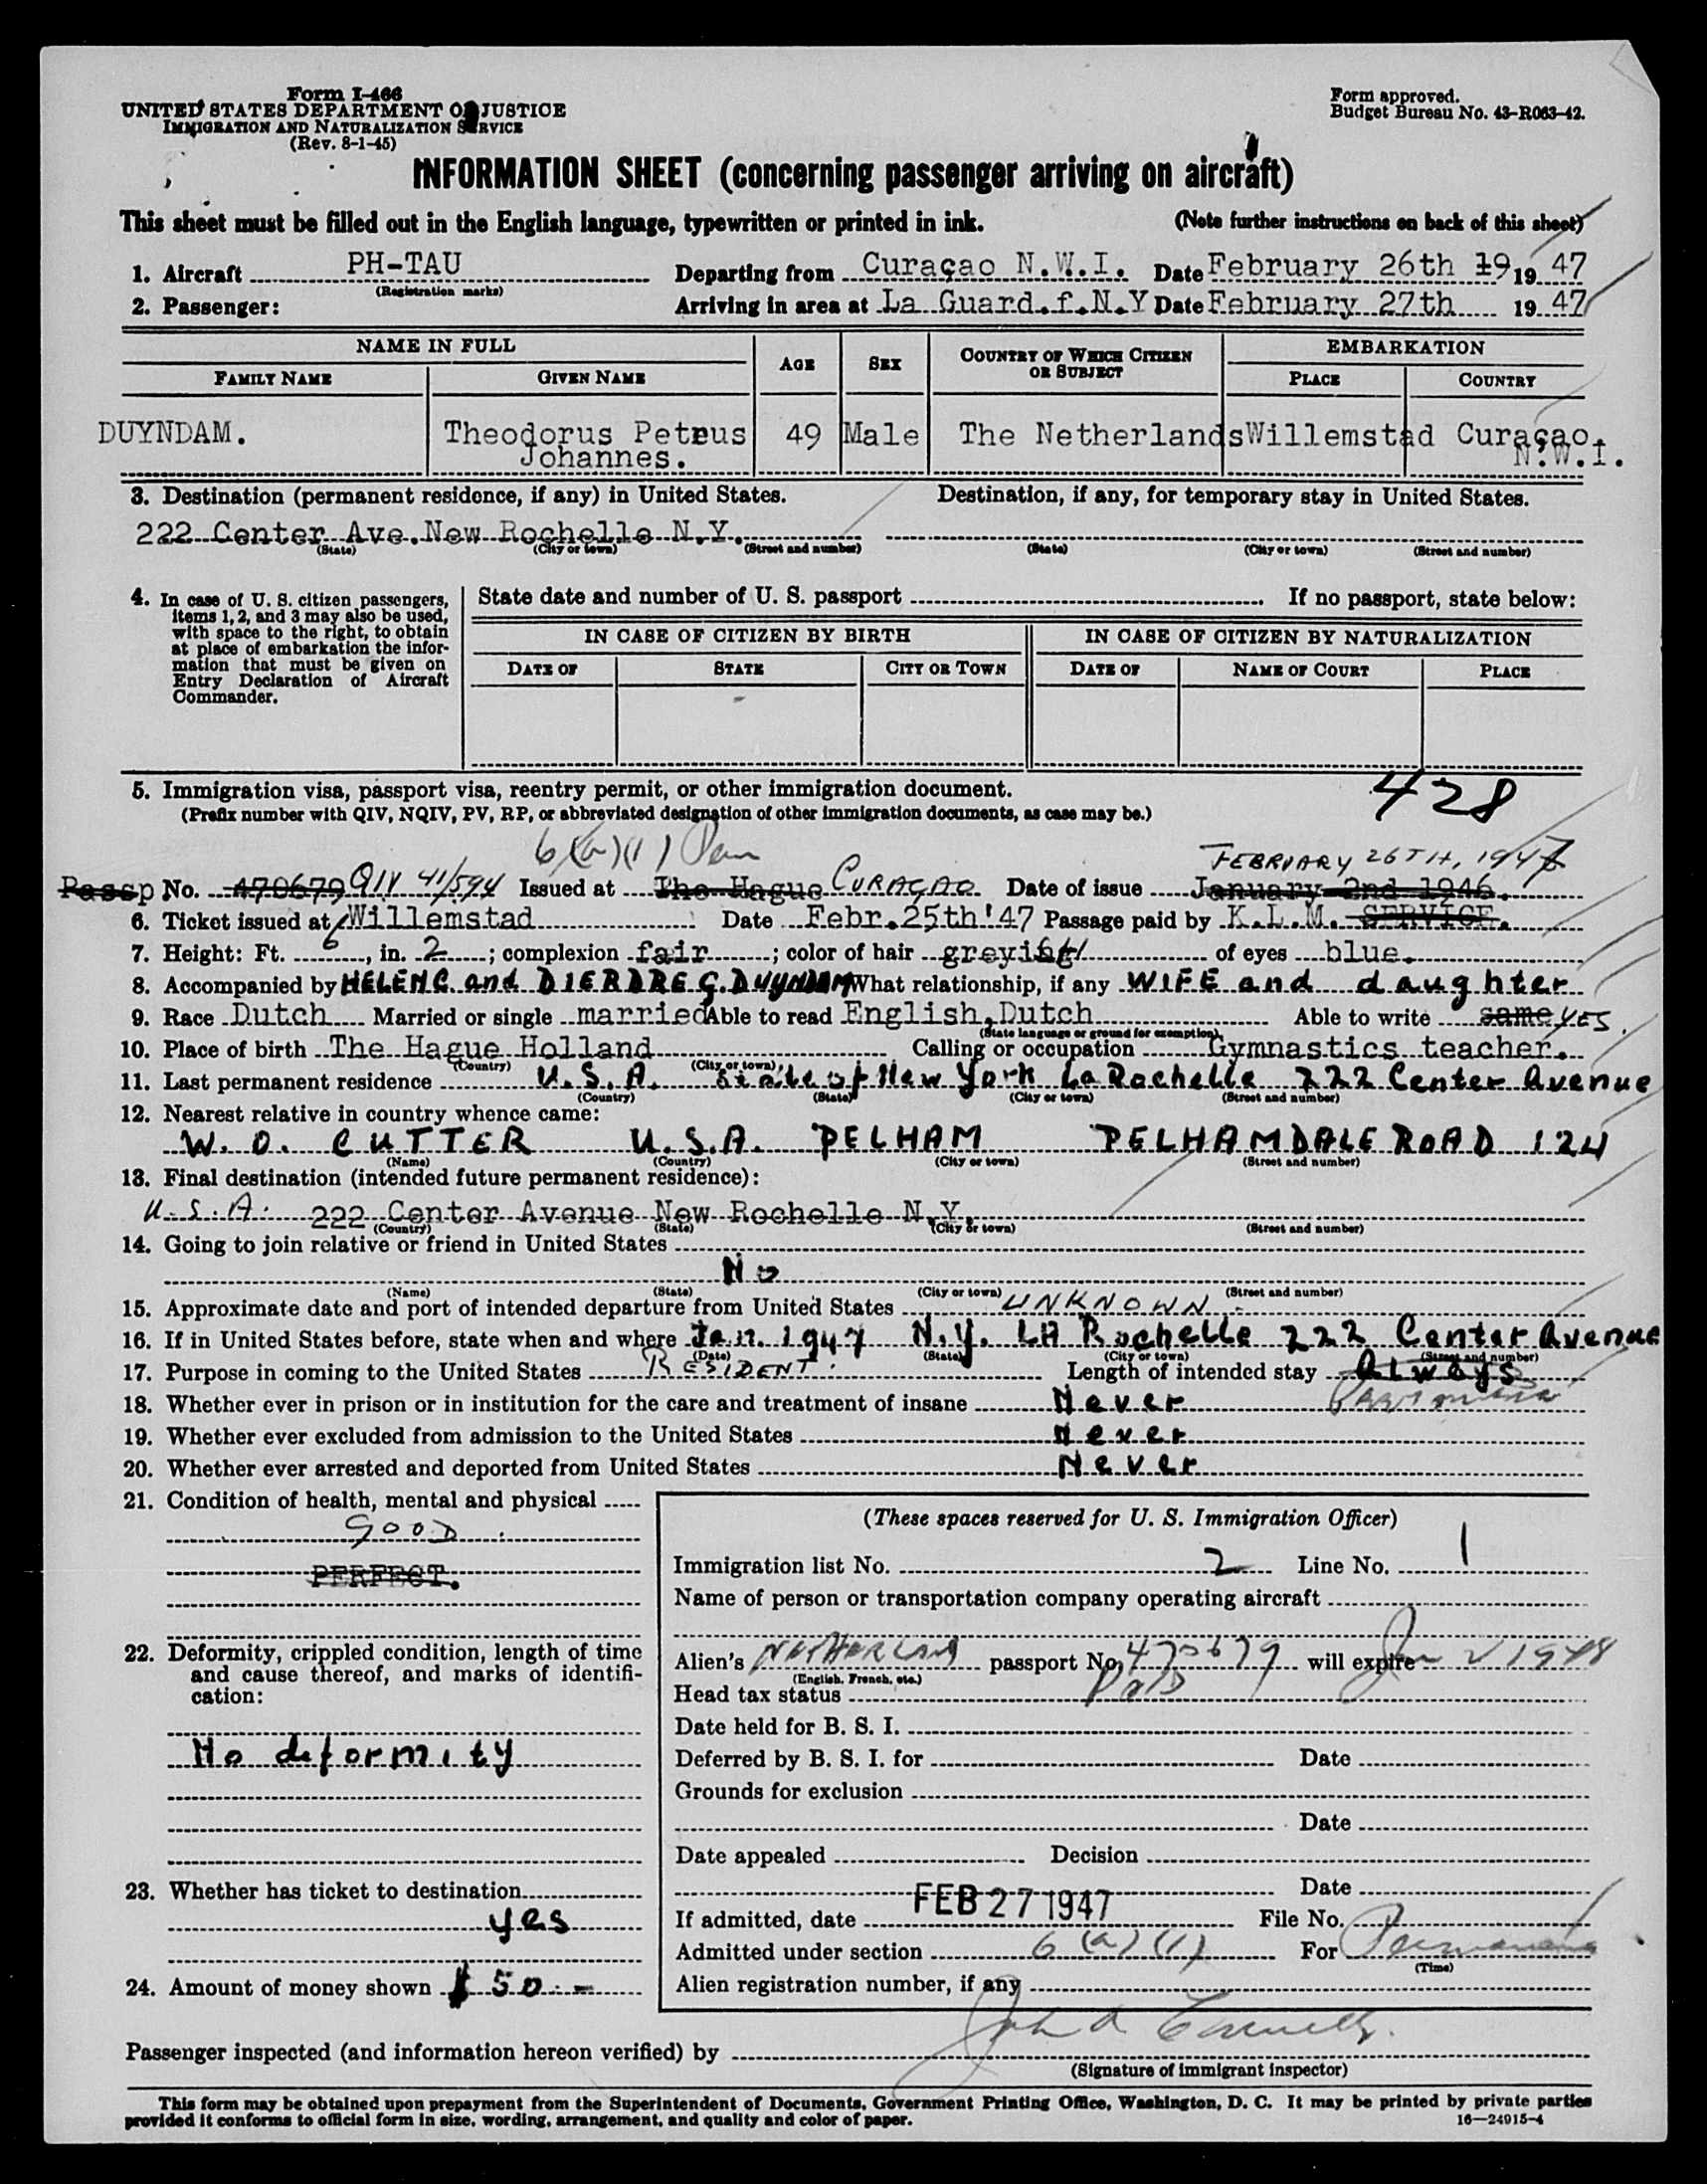 Form I-466
UNITED STATES DEPARTMENT OF JUSTICE
IMMIGRATION AND NATURALIZATION SERVICE
(Rev. 8-1-45)
Form approved.
Budget Bureau No. 43-R063-42.
INFORMATION SHEET (concerning passenger arriving on aircraft)
This sheet must be filled out in the English language, typewritten or printed in ink. (Note further instructions on back of this sheet)
1. Aircraft PH-TAU Departing from Curaçao N.W.I. Date February 26th 19 19 47
(Registration marks)
2. Passenger: Arriving in area at La Guard.f.N.Y Date February 27th 19 47
NAME IN FULL AGE SEX COUNTRY OF WHICH CITIZEN OR SUBJECT EMBARKATION
FAMILY NAME GIVEN NAME PLACE COUNTRY
DUYNDAM. Theodorus Petrus 49 Male The Netherlands Willemstad Curaçao.
Johannes. N.W.I.
3. Destination (permanent residence, if any) in United States. Destination, if any, for temporary stay in United States.
222 Center Ave.New Rochelle N.Y.
(State) (City or town) (Street and number) (State) (City or town) (Street and number)
4. In case of U. S. citizen passengers, items 1, 2, and 3 may also be used, with space to the right, to obtain at place of embarkation the information that must be given on Entry Declaration of Aircraft Commander.
State date and number of U. S. passport If no passport, state below:
IN CASE OF CITIZEN BY BIRTH IN CASE OF CITIZEN BY NATURALIZATION
DATE OF STATE CITY OR TOWN DATE OF NAME OF COURT PLACE
5. Immigration visa, passport visa, reentry permit, or other immigration document. 428
(Prefix number with QIV, NQIV, PV, RP, or abbreviated designation of other immigration documents, as case may be.)
6(a)(1) Perm FEBRUARY 26TH, 1947
Passp No. 470679 QIV 41/594 Issued at The Hague CURAÇAO Date of issue January 2nd 1946.
6. Ticket issued at Willemstad Date Febr.25th'47 Passage paid by K.L.M. SERVICE.
7. Height: Ft. 6, in. 2; complexion fair; color of hair greyish of eyes blue.
8. Accompanied by HELEN C. and DIERDRE G. DUYNDAM What relationship, if any WIFE and daughter
9. Race Dutch Married or single married Able to read English,Dutch Able to write same YES.
(State language or ground for exemption)
10. Place of birth The Hague Holland Calling or occupation Gymnastics teacher.
(Country) (City or town)
11. Last permanent residence U.S.A. State of New York La Rochelle 222 Center Avenue
(Country) (State) (City or town) (Street and number)
12. Nearest relative in country whence came:
W. O. CUTTER U.S.A. PELHAM PELHAMDALE ROAD 124
(Name) (Country) (City or town) (Street and number)
13. Final destination (intended future permanent residence):
U.S.A. 222 Center Avenue New Rochelle N.Y.
(Country) (State) (City or town) (Street and number)
14. Going to join relative or friend in United States
No
(Name) (State) (City or town) (Street and number)
15. Approximate date and port of intended departure from United States UNKNOWN
16. If in United States before, state when and where Jan. 1947 N.Y. LA Rochelle 222 Center Avenue
(Date) (State) (City or town) (Street and number)
17. Purpose in coming to the United States RESIDENT. Length of intended stay Always
18. Whether ever in prison or in institution for the care and treatment of insane Never Permanent
19. Whether ever excluded from admission to the United States Never
20. Whether ever arrested and deported from United States Never
21. Condition of health, mental and physical
GOOD
PERFECT.
22. Deformity, crippled condition, length of time and cause thereof, and marks of identification:
No deformity
23. Whether has ticket to destination
yes
24. Amount of money shown $ 50.-
(These spaces reserved for U. S. Immigration Officer)
Immigration list No. 2 Line No. 1
Name of person or transportation company operating aircraft
Alien's NETHERLAND passport No. 470679 will expire Jan 2 1948
(English, French, etc.)
Head tax status Paid
Date held for B. S. I.
Deferred by B. S. I. for Date
Grounds for exclusion
Date
Date appealed Decision
Date
If admitted, date FEB 27 1947 File No.
Admitted under section 6 (a) (1) For Permanent
(Time)
Alien registration number, if any
Passenger inspected (and information hereon verified) by John A
(Signature of immigrant inspector)
This form may be obtained upon prepayment from the Superintendent of Documents, Government Printing Office, Washington, D. C. It may be printed by private parties
provided it conforms to official form in size, wording, arrangement, and quality and color of paper. 16—24915-4